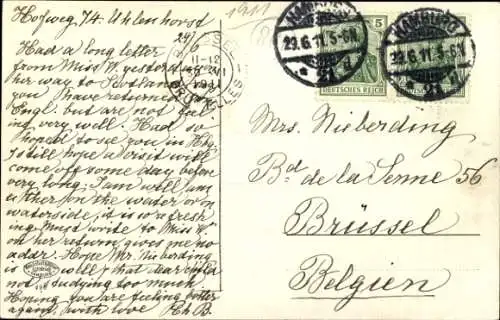 Hofweg 74. Uhlenhorst
24/6
Had a long letter
from Miss V. yesterday on
her way to Scotland
you have returned from
Engl. but are not feel-
ing very well. Had so
hoped to see you in Hbg.
I still hope a visit will
come off some day before
very long. I am well am
either on the water or on
waterside, it is so refresh
ing. Must write to Miss V.
on her return, gives me no
addr. Hope Mr. Nieberding
is well & that dear
not studying too much
Hoping you are feeling better
again, with love H. B.
1911
HAMBURG
23.6.11. 5-6 N.
* 21 d
HAMBURG
23.6.11. 5-6 N.
* 21 d
5
DEUTSCHES REICH
BRUXELLES
11-12
1911
BRUSSEL
Mrs. Nieberding
Bd. de la Senne 56
Brüssel
Belgien